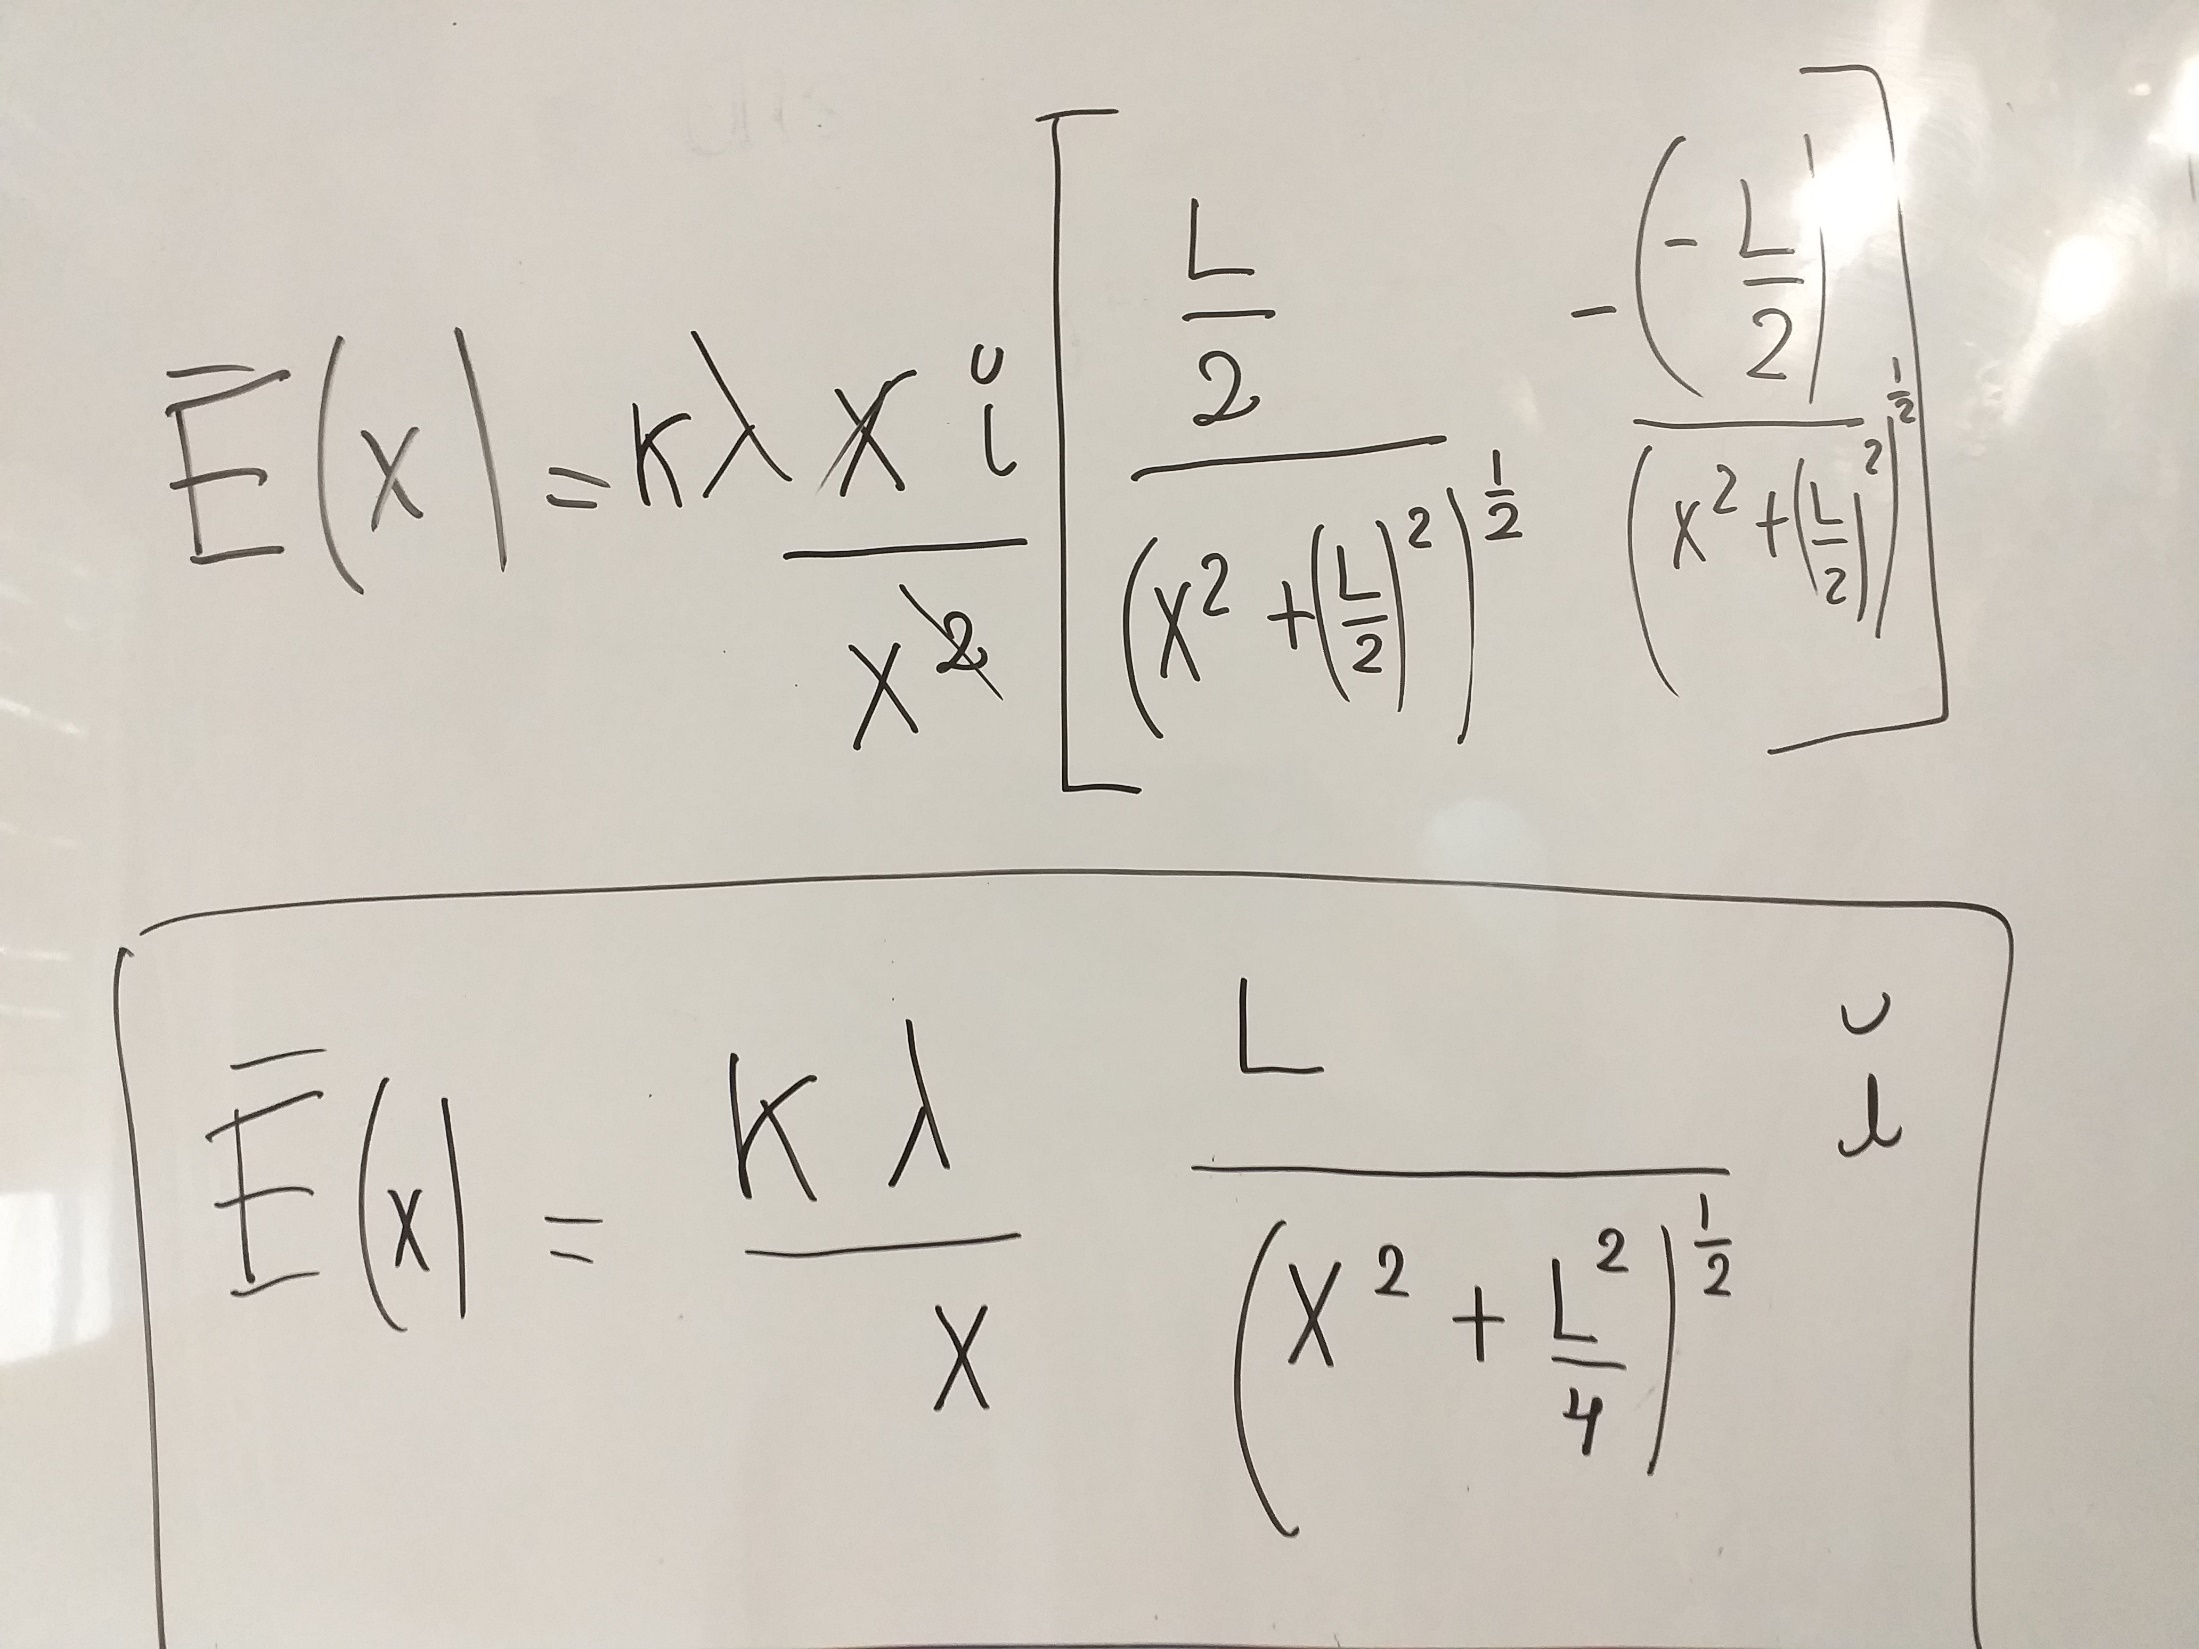 E̅(x) = kλ x ĭ / x² [ (L/2) / (x² + (L/2)²)^(1/2) - (-L/2) / (x² + (L/2)²)^(1/2) ]
E̅(x) = kλ / x L / (x² + L²/4)^(1/2) ĭ